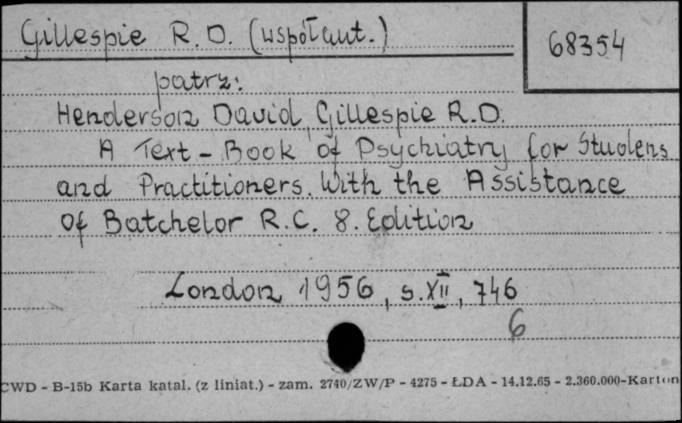 Gillespie R.D. (współaut.)
68354
patrz:
Henderson David, Gillespie R.D.
A Text-Book of Psychiatry for Studens
and Practitioners. With the Assistance
of Batchelor R.C. 8. Edition
London 1956, s. XII, 746
6
CWD - B-15b Karta katal. (z liniat.) - zam. 2740/ZW/P - 4275 - ŁDA - 14.12.65 - 2.360.000-Karton